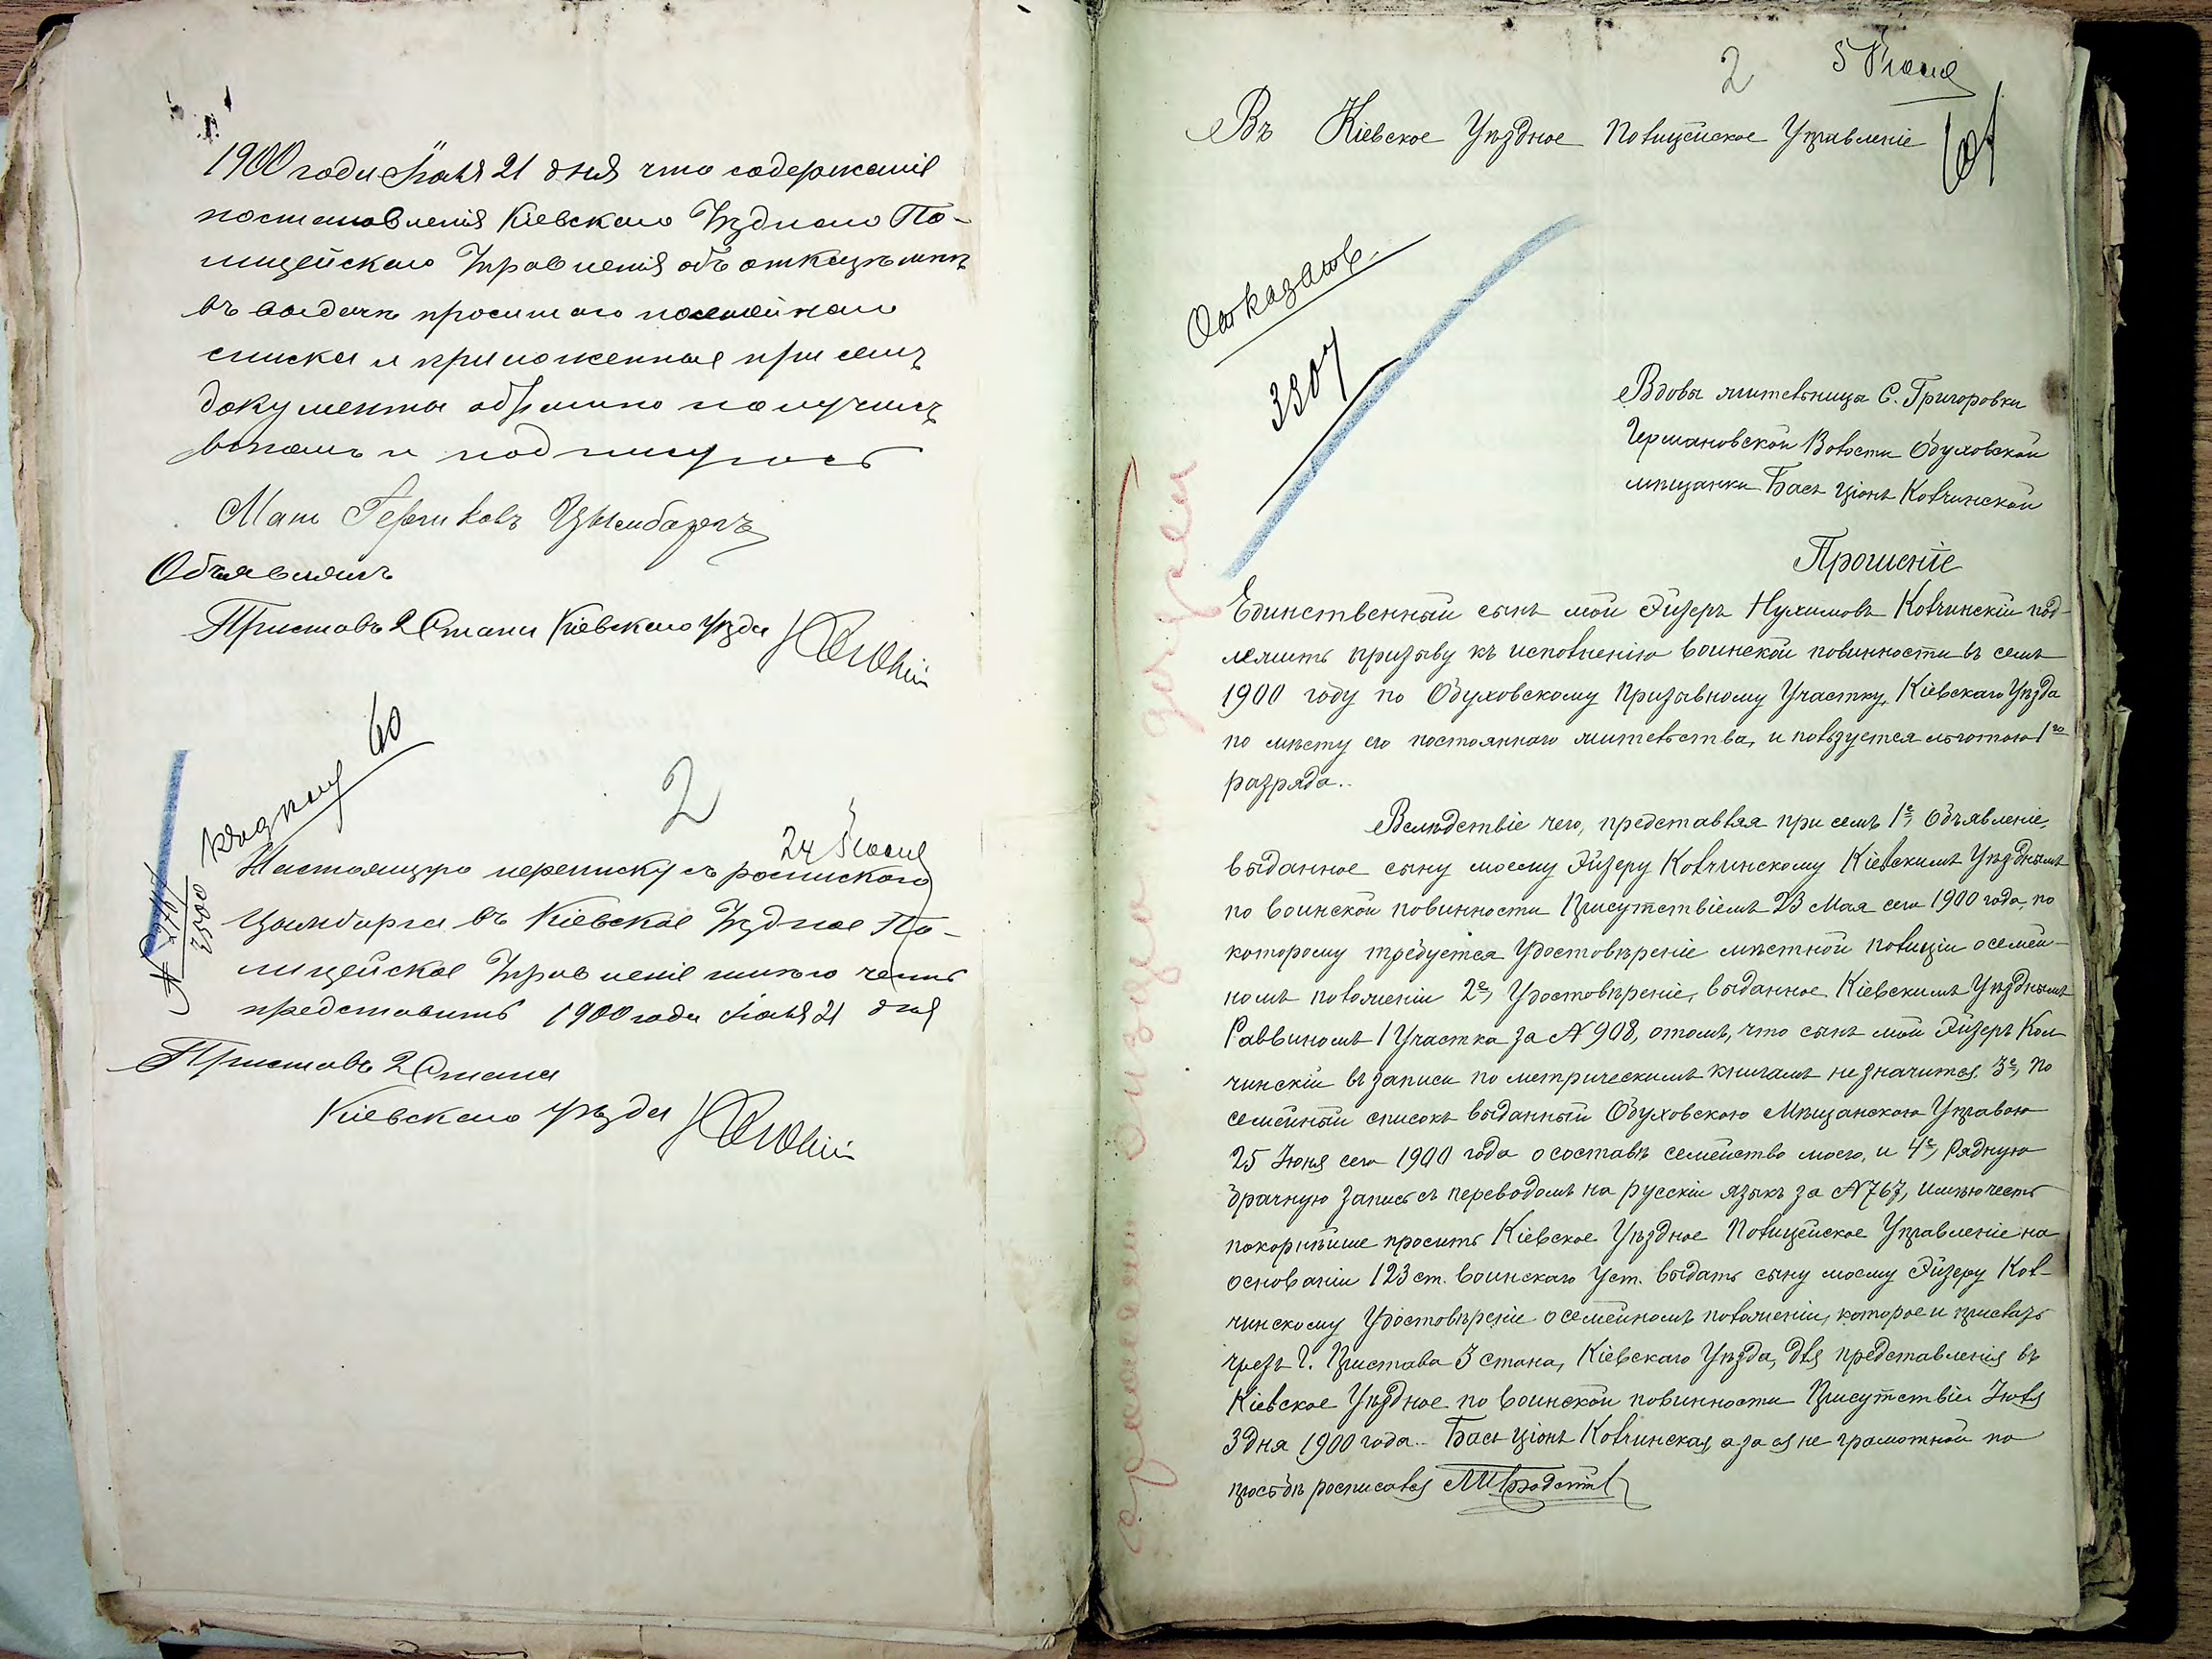 1900 года Іюня 21 дня что содержаніе
постановленія Кіевскаго Уѣзднаго По-
лицейскаго Управленія объ отказѣ мнѣ
въ выдачѣ просимаго посемейнаго
списка и приложенныя при семъ
документы обратно получилъ
въ томъ и подписуюсь
Мат Гершковъ Цымбаргъ
Объявилъ
Приставъ 2 Стана Кіевскаго уѣзда
60
2
24 Іюня
Настоящую переписку съ роспискою
Цымбарга въ Кіевское Уѣздное По-
лицейское Управленіе имѣю честь
представить 1900 года Іюня 21 дня
Приставъ 2 Стана
Кіевскаго уѣзда
2 5 Іюля
61
Въ Кіевское Уѣздное Полицейское Управленіе
Отказать
3307
Вдовы жительницы С. Григоровки
Германовской Волости Обуховской
мѣщанки Бась Ціонъ Колчинской
Прошеніе
Единственный сынъ мой Эйзеръ Нухимовъ Колчинскій под-
лежитъ призыву къ исполненію воинской повинности въ семъ
1900 году по Обуховскому Призывному Участку, Кіевскаго Уѣзда
по мѣсту его постояннаго жительства, и пользуется льготою 1го
разряда..
Вслѣдствіе чего, представляя при семъ 1е, Объявленіе,
выданное сыну моему Эйзеру Колчинскому Кіевскимъ Уѣзднымъ
по воинской повинности Присутствіемъ 23 Мая сего 1900 года, по
которому требуется Удостовѣреніе мѣстной полиціи о семей-
номъ положеніи 2е, Удостовѣреніе, выданное Кіевскимъ Уѣзднымъ
Раввиномъ 1 Участка за № 908, о томъ, что сынъ мой Эйзеръ Кол
чинскій въ записи по метрическимъ книгамъ не значится, 3е, По
семейный списокъ выданный Обуховскою Мѣщанскою Управою
25 Іюня сего 1900 года о составѣ семейство моего, и 4е, Рядную
брачную запись съ переводомъ на русскій языкъ за № 767, имѣю честь
покорнѣйше просить Кіевское Уѣздное Полицейское Управленіе на
основаніи 123 ст. воинскаго Уст. выдать сыну моему Эйзеру Кол-
чинскому Удостовѣреніе о семейномъ положеніи, которое и прислать
чрезъ Г. Пристава 3 стана, Кіевскаго Уѣзда, для представленія въ
Кіевское Уѣздное по воинской повинности Присутствіи Іюля
3 дня 1900 года.. Бась Ціонъ Колчинская, а за ея не грамотной по
просьбѣ росписался